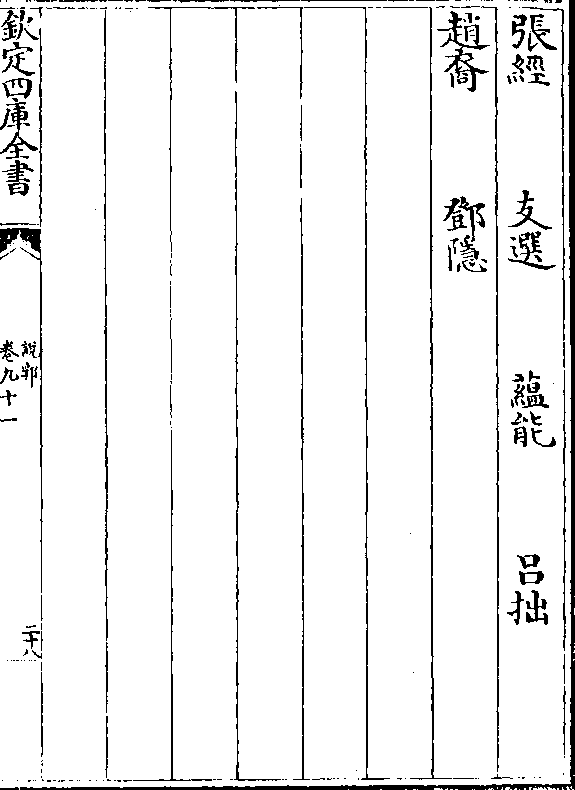 張經　友選　蘊能　呂拙
趙裔　鄧隱
欽定四庫全書
說郛
卷九十一
二十八